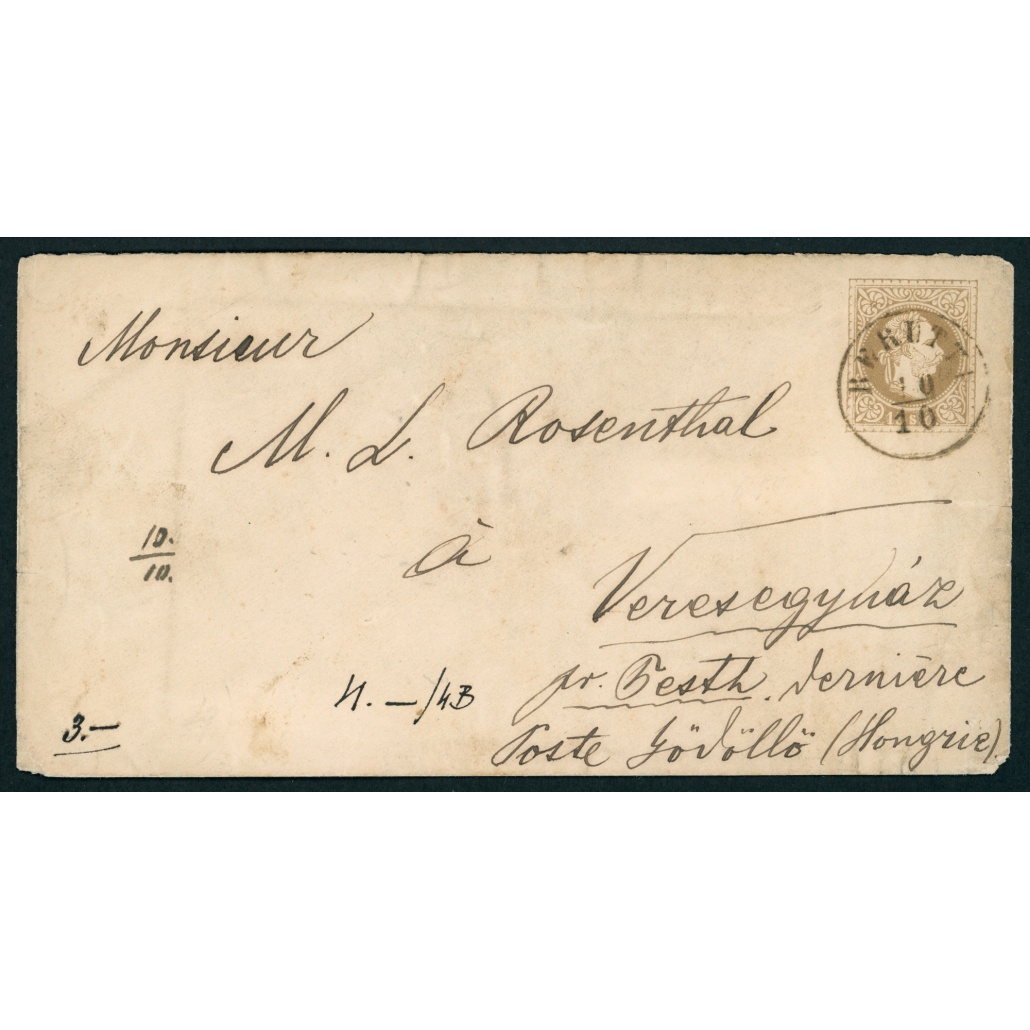 Monsieur
M. L. Rosenthal
à
Veresegyház
pr. Pesth. dernière
Poste Gödöllö (Hongrie).
10.
10.
3.—
10
10